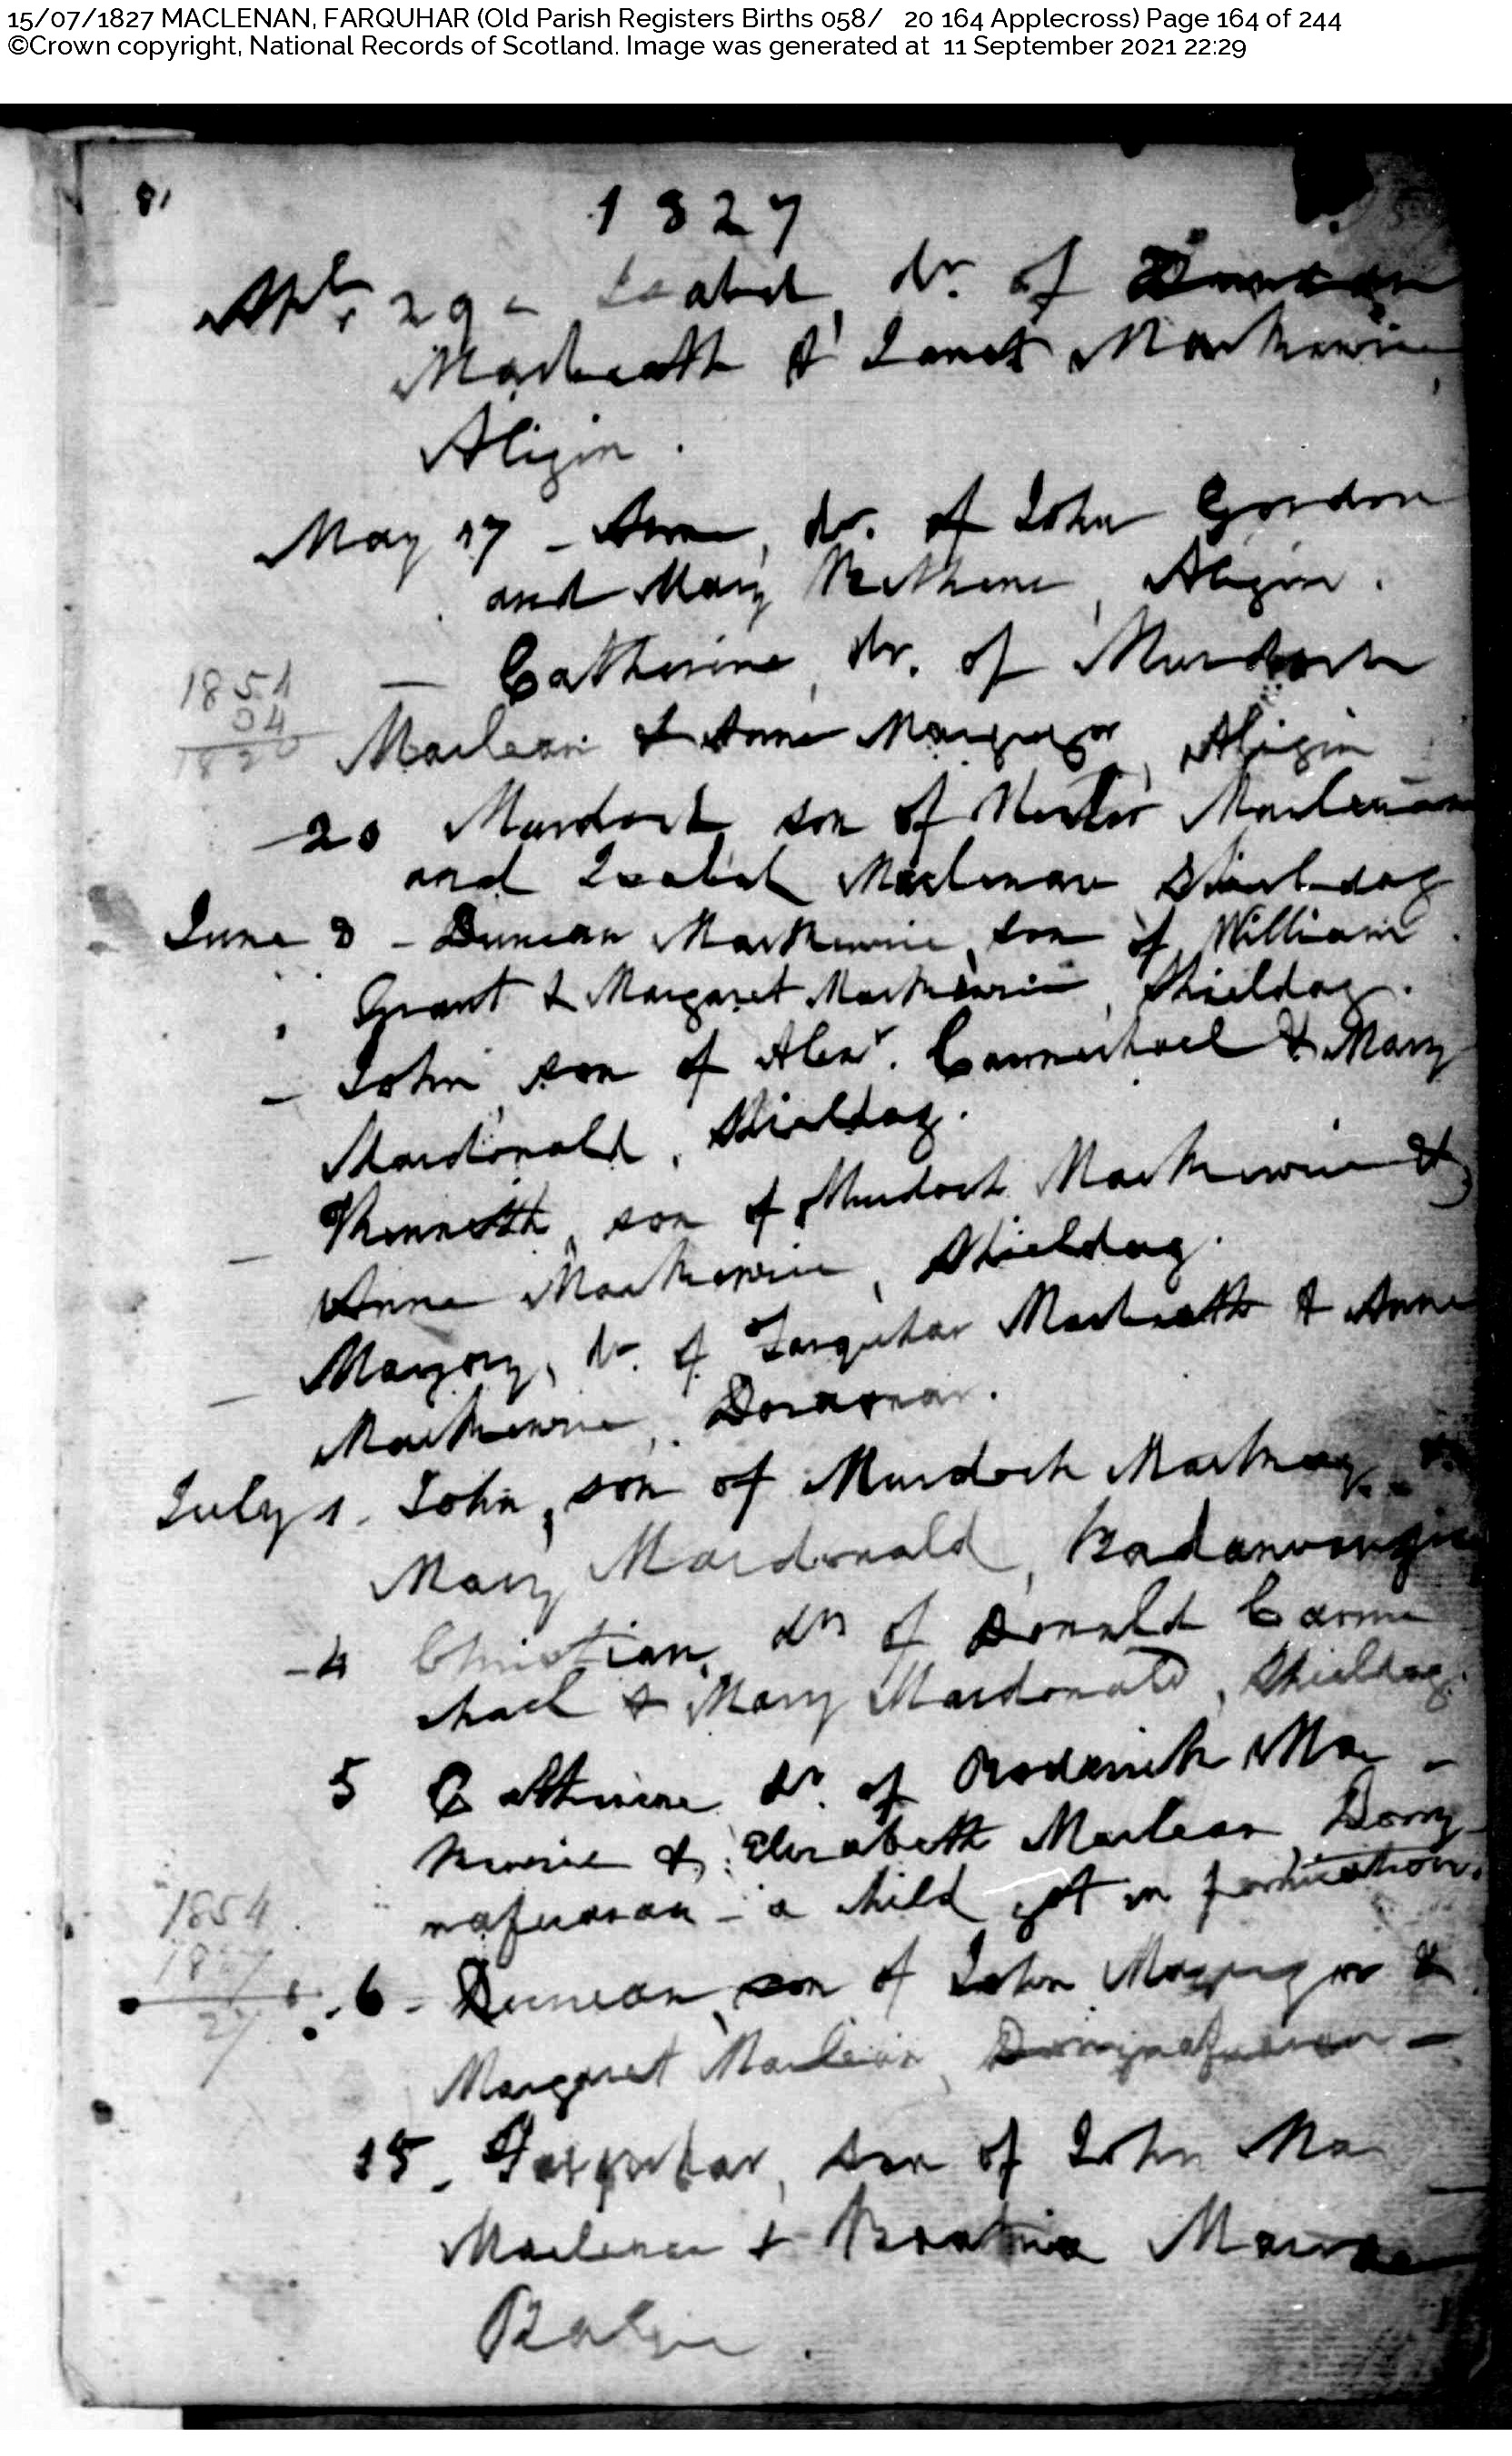 15/07/1827 MACLENAN, FARQUHAR (Old Parish Registers Births 058/ 20 164 Applecross) Page 164 of 244
©Crown copyright, National Records of Scotland. Image was generated at 11 September 2021 22:29
81
1827
Apl. 29 - Isabel, dr. of Duncan
Macbeath & Janet Mackenzie,
Aligin.
May 27 - Anne, dr. of John Gordon
and Mary Bethune, Aligin.
- Catherine, dr. of Murdoch
1851
04
Maclean & Anne Macgregor, Aligin
- 20 Murdoch son of Hector Maclennan
and Isabel Maclenan Shieldag
June 8 - Duncan Mackenzie, son of William
Grant & Margaret Mackenzie, Shieldag.
- John, son of Alexr. Carmichael & Mary
Macdonald, Shieldag.
- Kenneth, son of Murdoch Mackenzie &
Anne Mackenzie, Shieldag.
- Marjory, dr. of Farquhar Macbeath & Anne
Mackenzie,
July 1. John, son of Murdoch Mackay &
Mary Macdonald,
- 4 Christian, dr of Donald Carmi
chael & Mary Macdonald, Shieldag.
5 Catherine dr. of Roderick Ma -
kenzie & Elizabeth Maclean Dorry
nafuaran - a child got in fornication.
1854
1827
27
6 - Duncan, son of John Macgregor &
Margaret Maclean, Dorrynafuaran -
15. Farquhar, son of John Ma
Maclenan & Beatrix Macrae